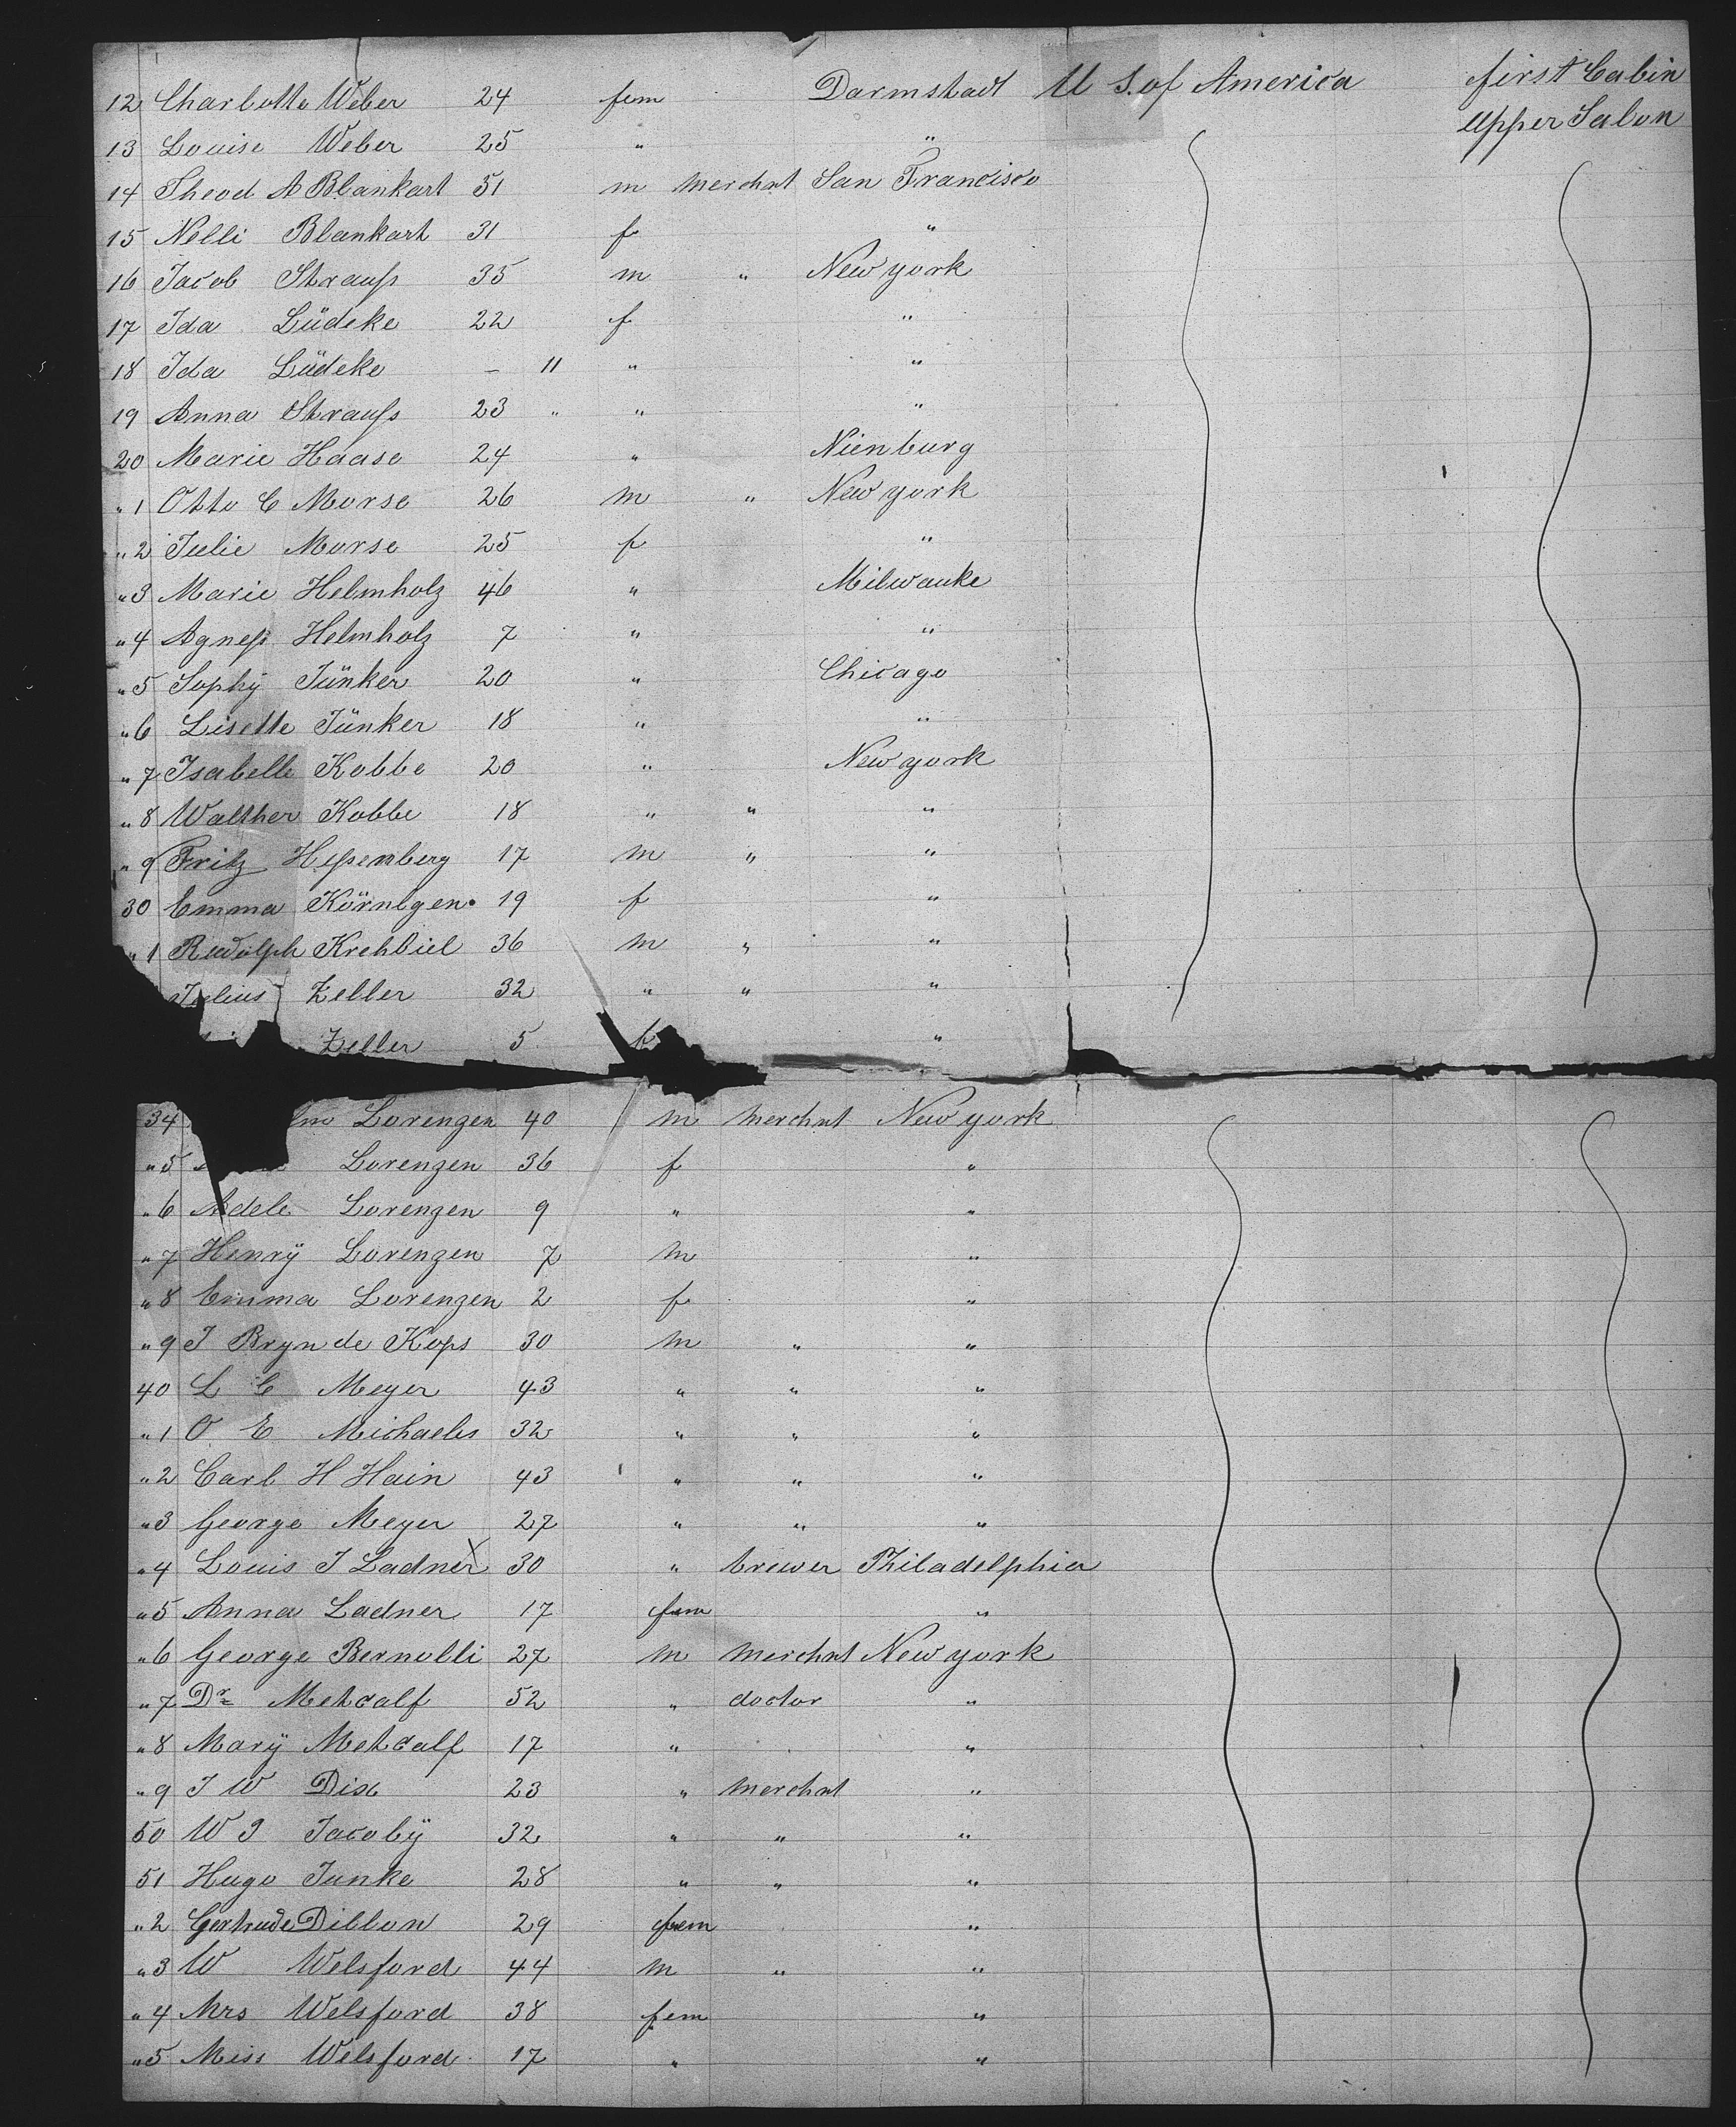 12 Charlotte Weber 24 fem Darmstadt U S. of America first Cabin
upper Salon
13 Louise Weber 25 " "
14 Theod A Blankart 51 m merchnt San Francisco
15 Nelli Blankart 31 f "
16 Jacob Strauß 35 m " New york
17 Ida Lüdeke 22 f "
18 Ida Lüdeke – 11 " "
19 Anna Strauß 23 " " "
20 Marie Haase 24 " Nienburg
" 1 Otto C Morse 26 m " New york
" 2 Julie Morse 25 f "
" 3 Marie Helmholz 46 " Milwauke
" 4 Agneß Helmholz 7 " "
" 5 Sophÿ Jünker 20 " Chicago
" 6 Lisette Jünker 18 " "
" 7 Isabelle Kobbe 20 " New york
" 8 Walther Kobbe 18 " " "
" 9 Fritz Heßenberg 17 m " "
30 Emma Körntgen 19 f "
" 1 Rudolph Krehbiel 36 m " "
Julius Zeller 32 " " "
Zeller 5 f "
34 lm Lorenzen 40 m merchnt New york
" 5 Lorenzen 36 f "
" 6 Adele Lorenzen 9 " "
" 7 Henrÿ Lorenzen 7 m "
" 8 Emma Lorenzen 2 f "
" 9 J Bryn de Kops 30 m " "
40 L C Meyer 43 " " "
" 1 O E Michaelis 32 " " "
" 2 Carl H Hain 43 " " "
" 3 George Meyer 27 " " "
" 4 Louis J Ladner x 30 " brewer Philadelphia
" 5 Anna Ladner 17 fem "
" 6 George Bernolli 27 m merchnt New york
" 7 Dr Metcalf 52 " doctor "
" 8 Marÿ Metcalf 17 " "
" 9 J W Dix 23 " merchnt "
50 W J Jacobÿ 32 " " "
51 Hugo Junke 28 " " "
" 2 Gertrude Dillon 29 fem "
" 3 W Welsford 44 m " "
" 4 Mrs Welsford 38 fem "
" 5 Miss Welsford 17 " "